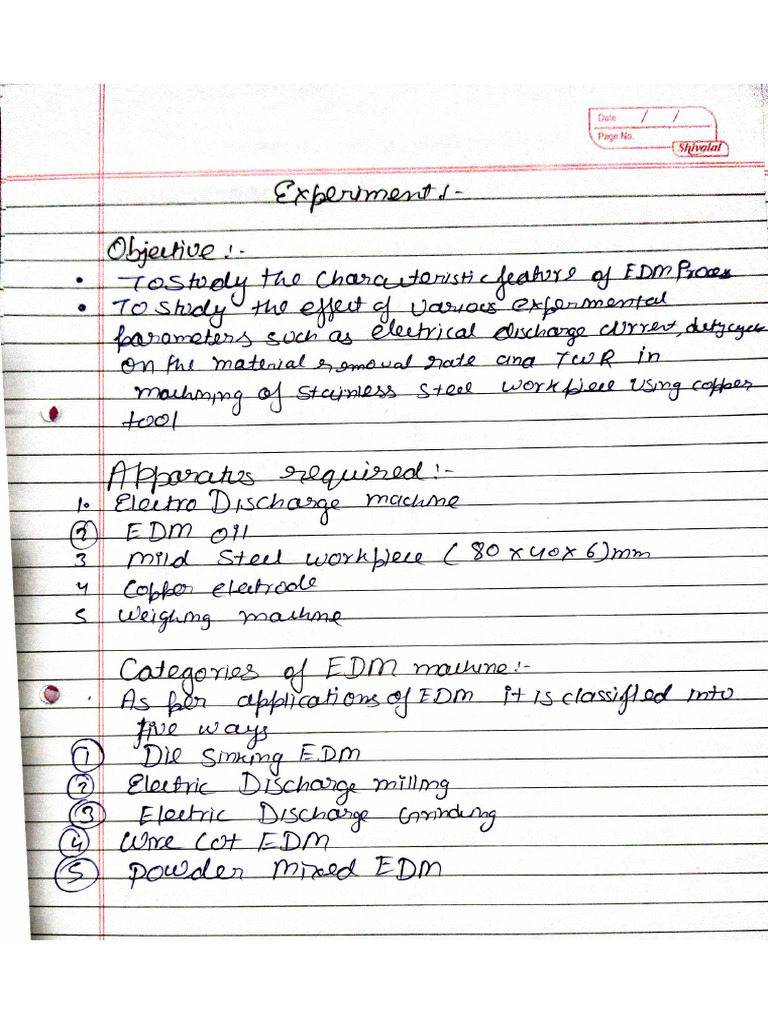 Date / /
Page No.
Shivalal
Experiment :-
Objective :-
• To study the characteristic feature of EDM Process
• To study the effect of various expermental
parameters such as electrical discharge current, dutycycle
on the material removal rate and TWR in
machining of stainless steel workpiece using copper
tool
Apparatus required :-
1. Electro Discharge machine
② EDM oil
3 mild steel workpiece (80 x 40 x 6) mm
4 Copper electrode
5 Weighing machine
Categories of EDM machine :-
. As per applications of EDM it is classified into
five ways
① Die Sinking EDM
② Electric Discharge milling
③ Electric Discharge Grinding
④ Wire Cut EDM
⑤ Powder Mixed EDM